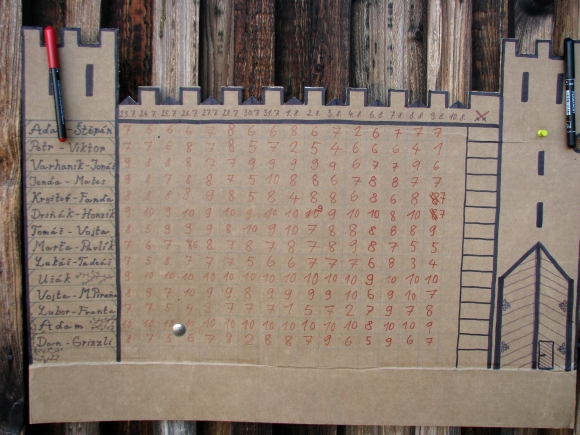 23.7. 24.7. 25.7. 26.7. 27.7. 28.7. 29.7. 30.7. 31.7. 1.8. 2.8. 3.8. 4.8. 5.8. 6.8. 7.8. 8.8. 9.8. 10.8.
Adam - Štěpán 7 5 6 6 7 8 6 6 8 6 7 2 6 7 7 7
Petr - Viktor 7 7 6 8 7 8 5 7 2 5 4 6 6 6 4 1
Varhaník - Jonáš 9 8 8 8 7 9 9 9 9 9 9 6 7 7 9 6
Jenda - Mates 9 7 8 8 7 8 5 10 8 8 6 7 8 8 7 7
Kryštof - Fanda 8 8 8 8 9 8 5 8 4 8 8 6 8 6 8
Drsňák - Honzík 9 10 9 10 9 10 9 10 10 9 10 10 8 10
Tomáš - Vojta 8 9 9 9 9 8 10 9 10 7 8 8 8 8 8 9
Marťa - Pavlík 7 6 7 7 8 7 8 7 8 7 8 9 8 7 5 5
Lukáš - Tadeáš 8 5 8 7 7 7 5 6 6 7 7 7 6 8 3 4
Ušák 9 10 10 10 10 10 10 10 10 10 10 10 9 10 10 10
Vojta - M. 8 8 7 10 9 9 8 9 9 9 9 10 6 9 10 7
Lubor - Franta 7 7 7 7 1 5 7 2 7 9 7 8
Adam 10 10 10 10 10 10 10 10 10 10 10 10 8 10 10 9
Dan - Grizzli 8 7 5 6 7 8 2 8 8 7 9 6 5 9 6 7